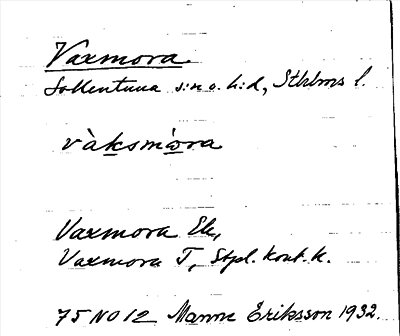 Vaxmora
Sollentuna s:n o. h:d, Sthlms l.
vàksmòra
Vaxmora Ek,
Vaxmora T, Stpl. kont. k.
75 NO 12 Manne Eriksson 1932.